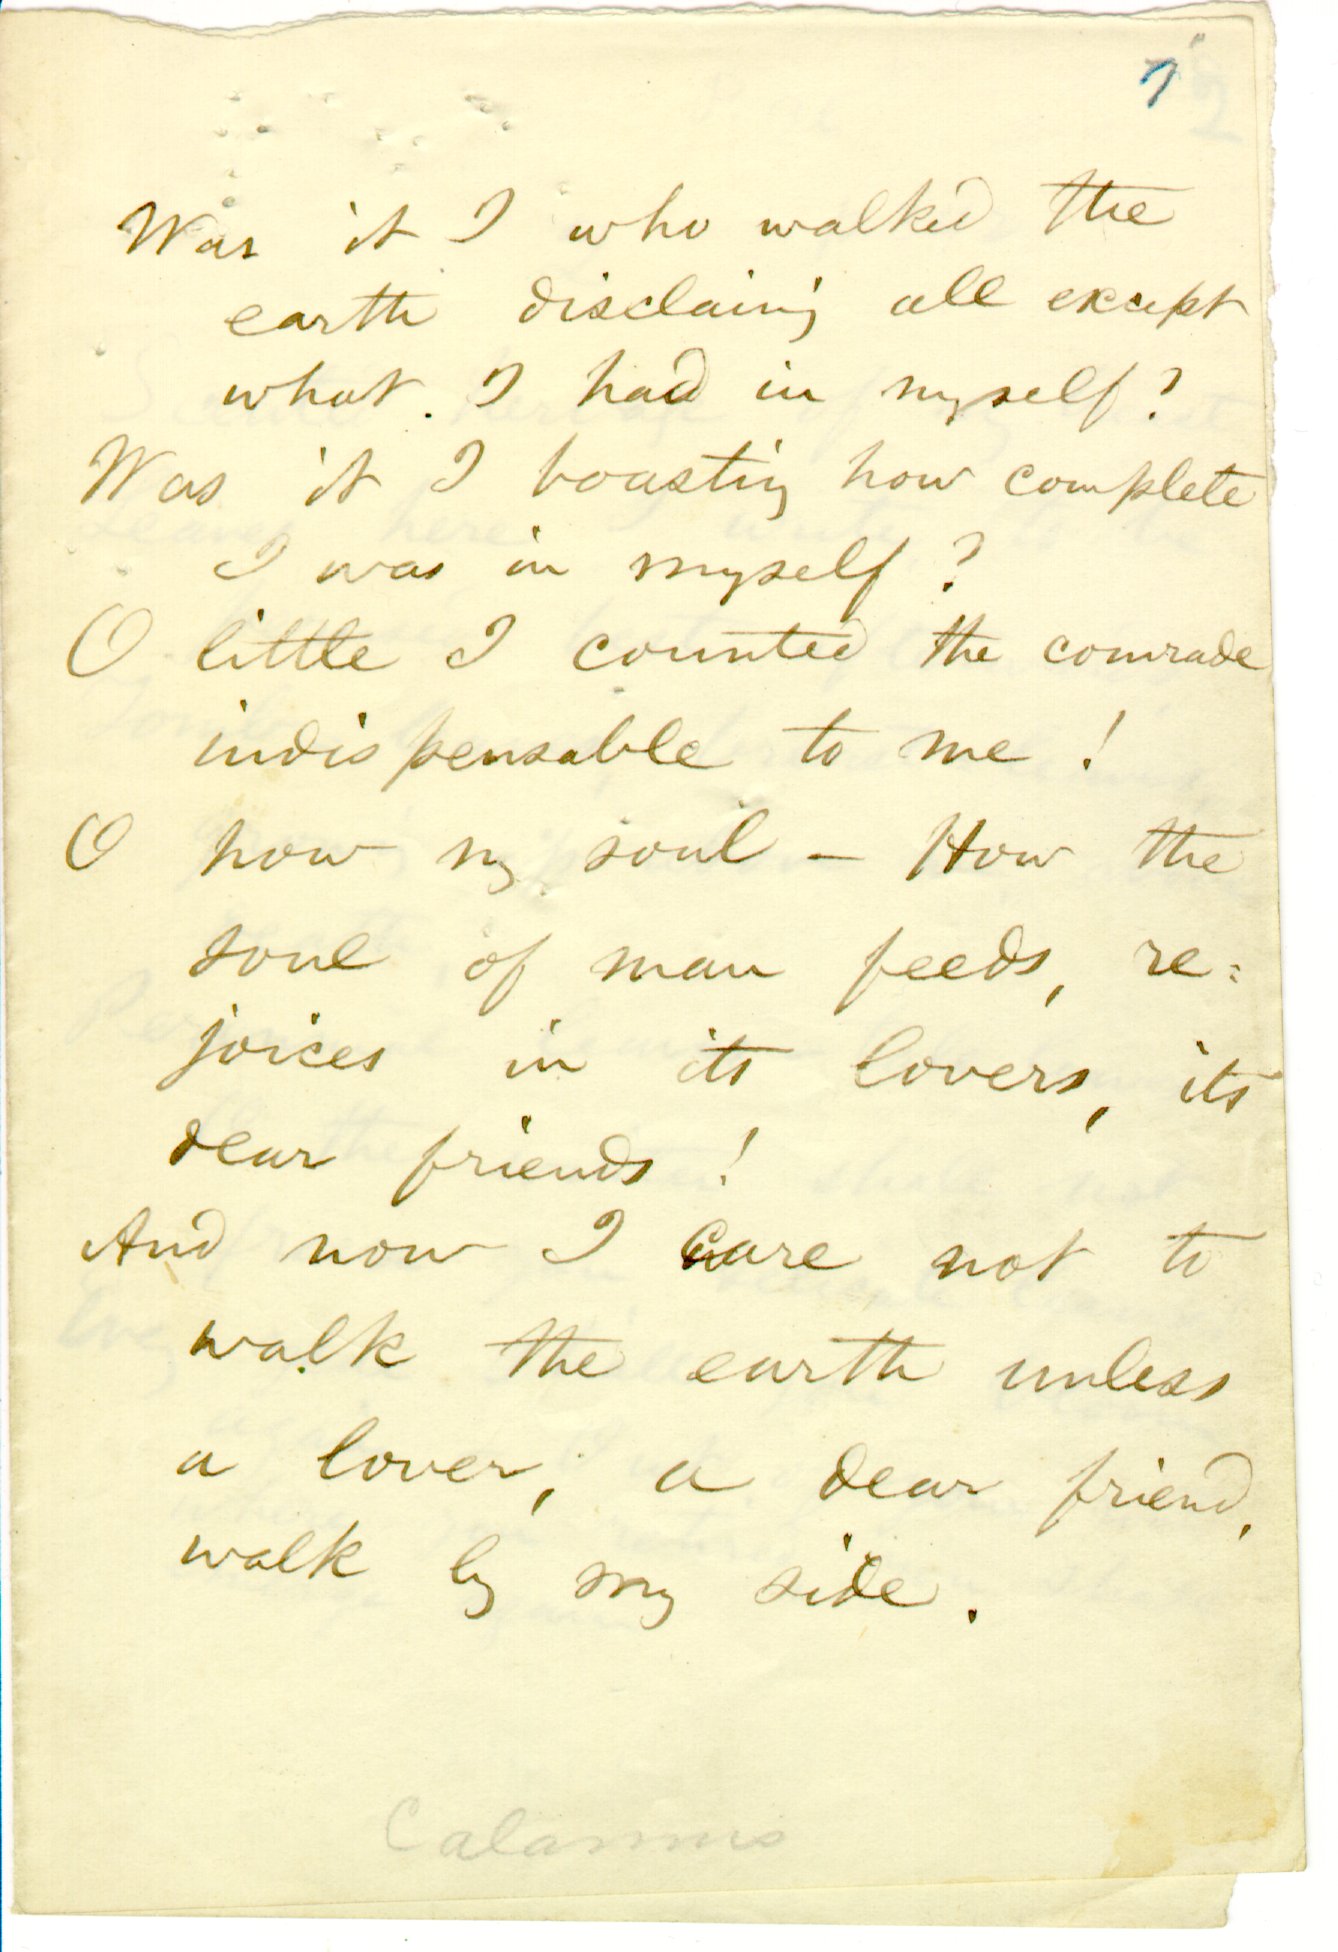 7
Was it I who walked the
earth disclaiming all except
what I had in myself?
Was it I boasting how complete
I was in myself?
O little I counted the comrade
indispensable to me!
O how my soul — How the
soul of man feeds, re=
joices in its lovers, its
dear friends!
And now I care not to
walk the earth unless
a lover, a dear friend,
walk by my side.
Calamus